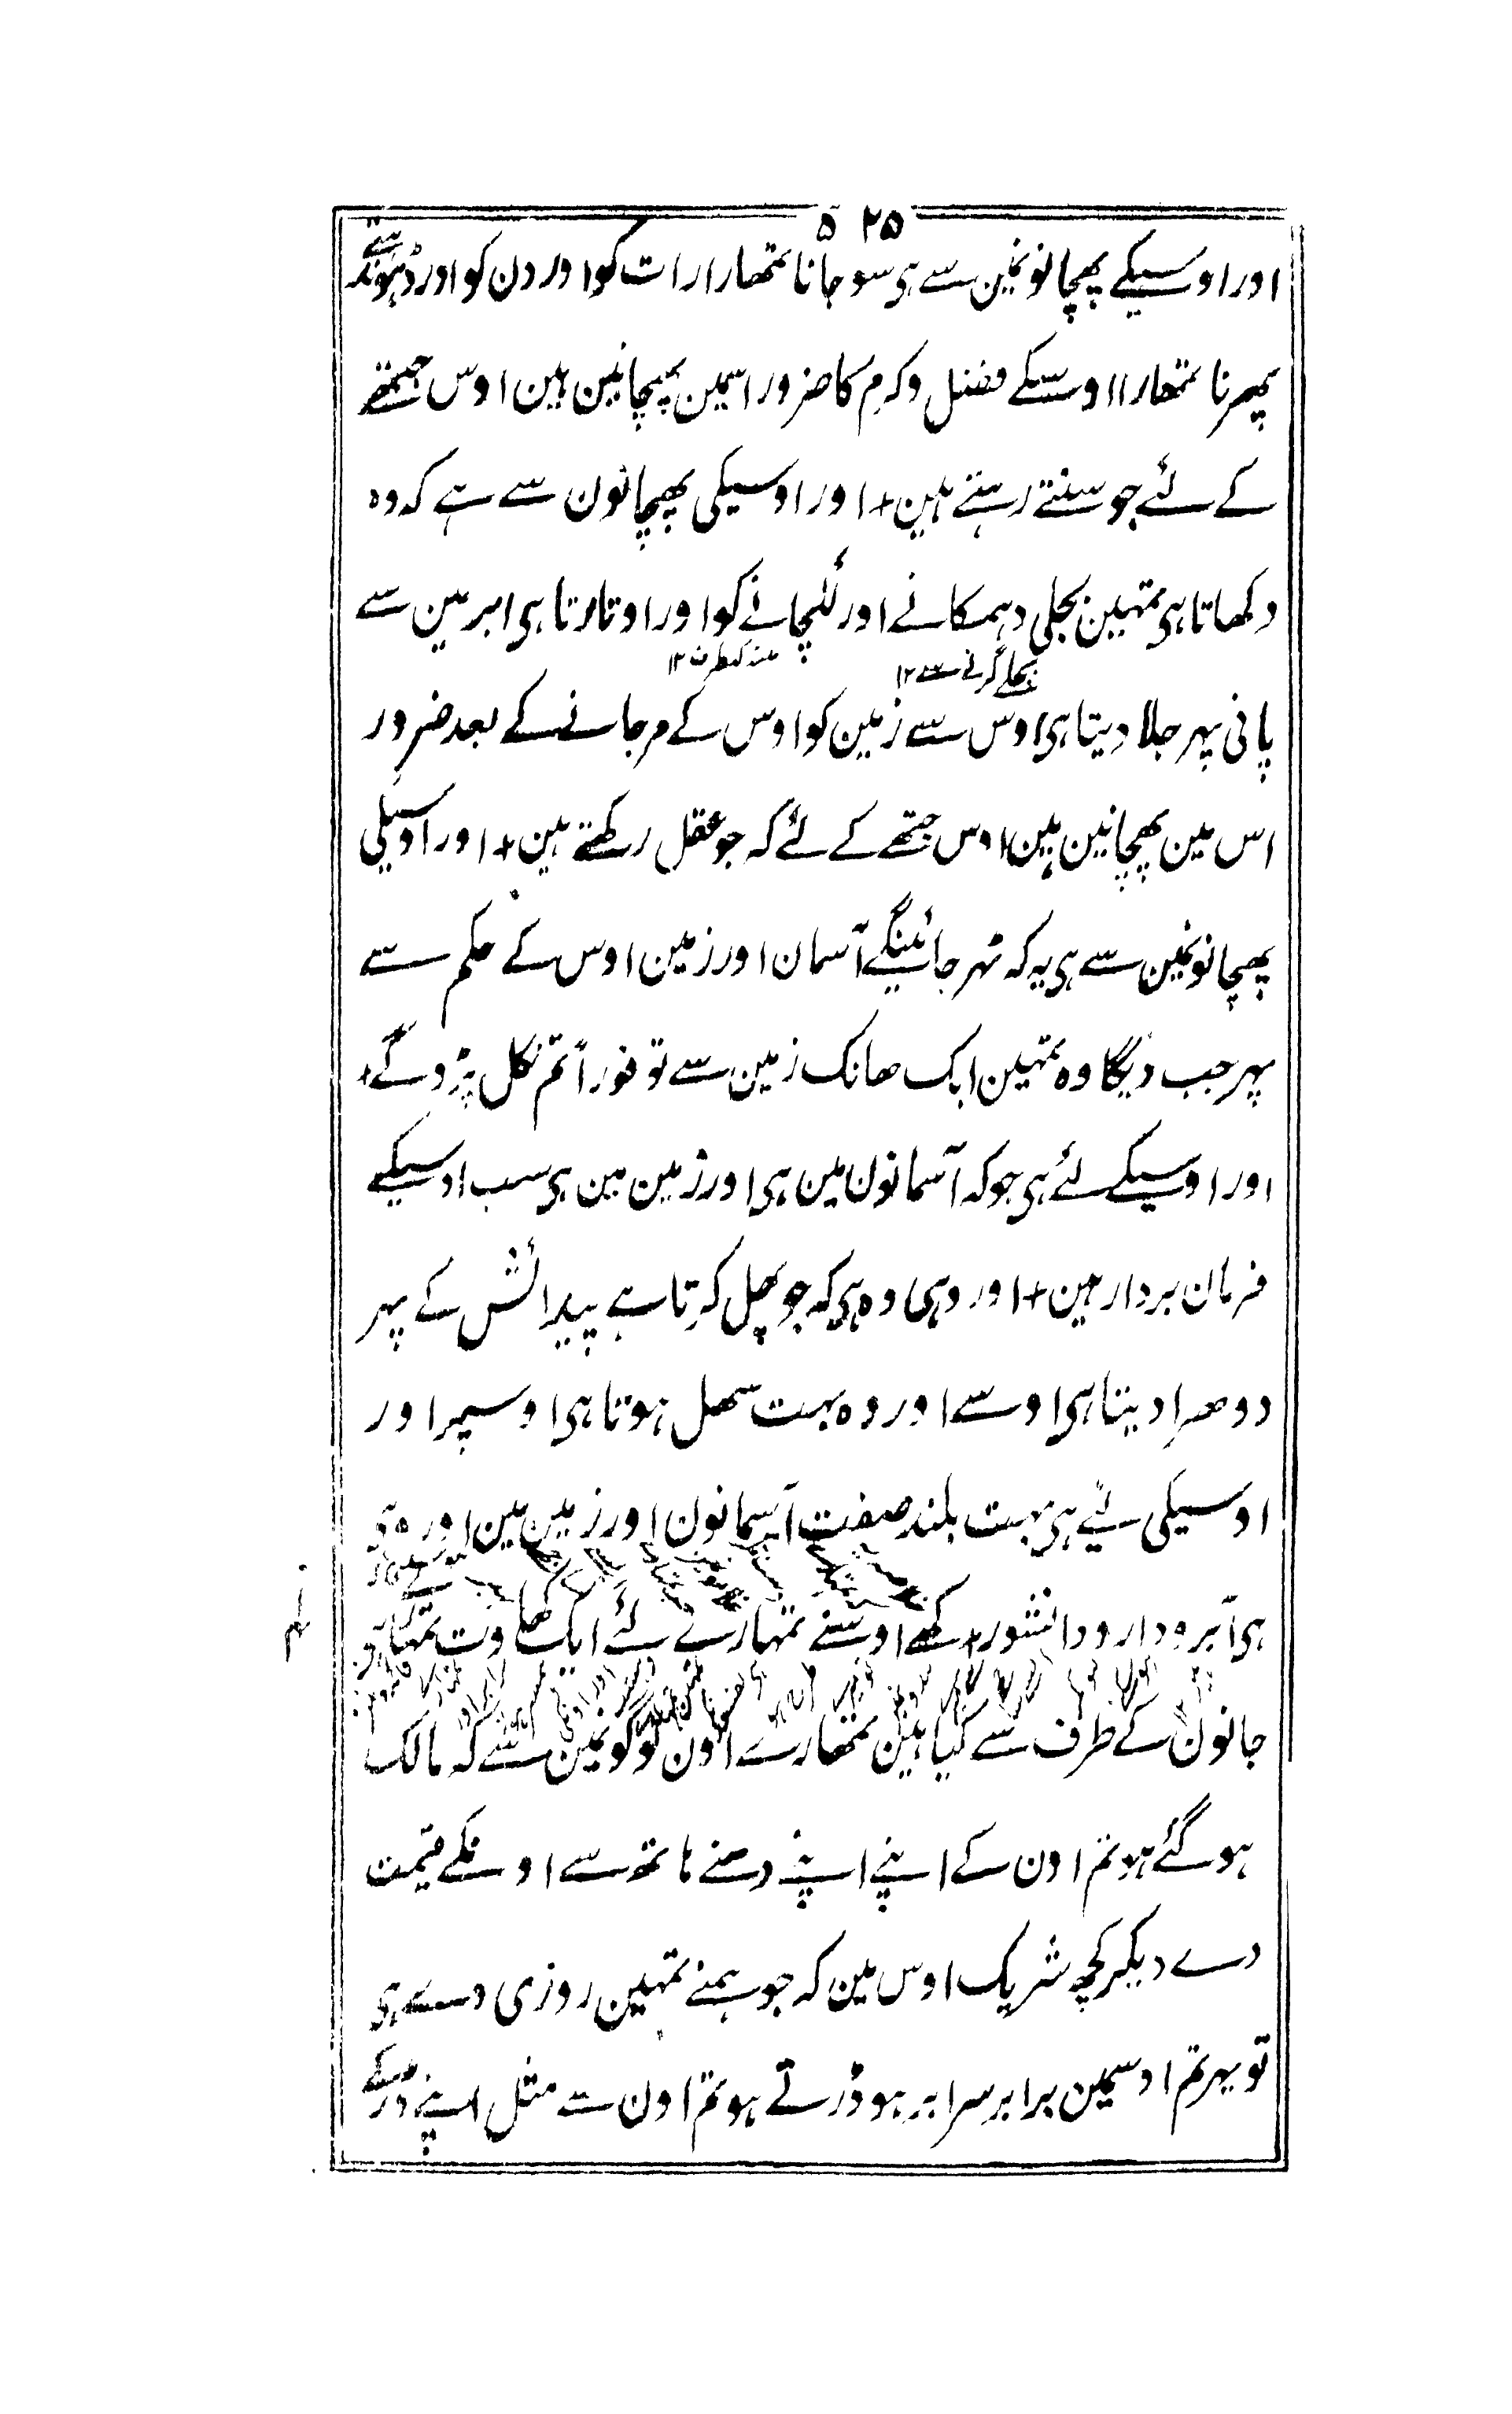 ۵۲۵
اور اوسیکے پہچانونمین سے ہی سو جانا تمھارا رات کو اور دن کو اور ڈہونڈتے
پھرنا تمھارا اوسکے فضل و کرم کا ضرور اسمین پہچانین ہین اوس جتھے
کے لئے جو سنتے رہتے ہین + اور اوسیکی پہچانون سے ہے کہ وہ
دکھاتا ہی تمہین بجلی دہمکانے اور للچانے کو اور اوتارتا ہی ابر مین سے
بجلے گرنے سے ۱۲
پانی پہر جلا دیتا ہی اوس سے زمین کو اوس کے مرجانے کے بعد ضرور
اس مین پہچانین ہین اوس جتھے کے لئے کہ جو عقل رکھتے ہین + اور اوسیکی
پہچانونمین سے ہی یہ کہ ٹہر جائینگے آسمان اور زمین اوس کے حکم سے
پہر جب دیگا وہ تمہین ایک ھانک زمین سے تو فوراً تم نکل پڑوگے +
اور اوسیکے لئے ہی جو کہ آسمانون مین ہی اور زمین مین ہی سب اوسیکے
فرمان بردار ہین + اور وہی وہ ہی کہ جو پھل کرتا ہے پیدائش کے پہر
دوھرا دیتا ہی اوسے اور وہ بہت سھل ہوتا ہی اوسپر اور
اوسیکی لئے ہی بہت بلند صفت آسمانون اور زمین مین اور وہی
ہی آبرودار و دانشور + کہے اوسنے تمہارے لئے ایک کھاوت تمہاری
جانون کے طرف سے کیا ہین تمھارے اون لوگونمین سے کہ مالک
ہوگئے ہو تم اون کے اپنے اپنے دھنے ہاتھ سے اونکے قیمت
دے دیکر کچھ شریک اوس مین کہ جو ہمنے تمہین روزی دے ہی
تو پہر تم اوسمین برابر سرابر ہو ڈرتے ہو تم اون سے مثل اپنے ڈرکے